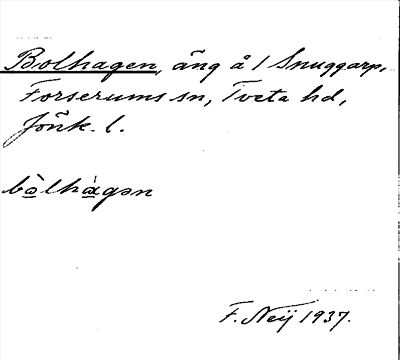 Bolhagen, äng å 1 Snuggarp,
Forserums sn, Tveta hd,
Jönk. l.
bo̱̊lhå̱gən
F. Neij 1937.